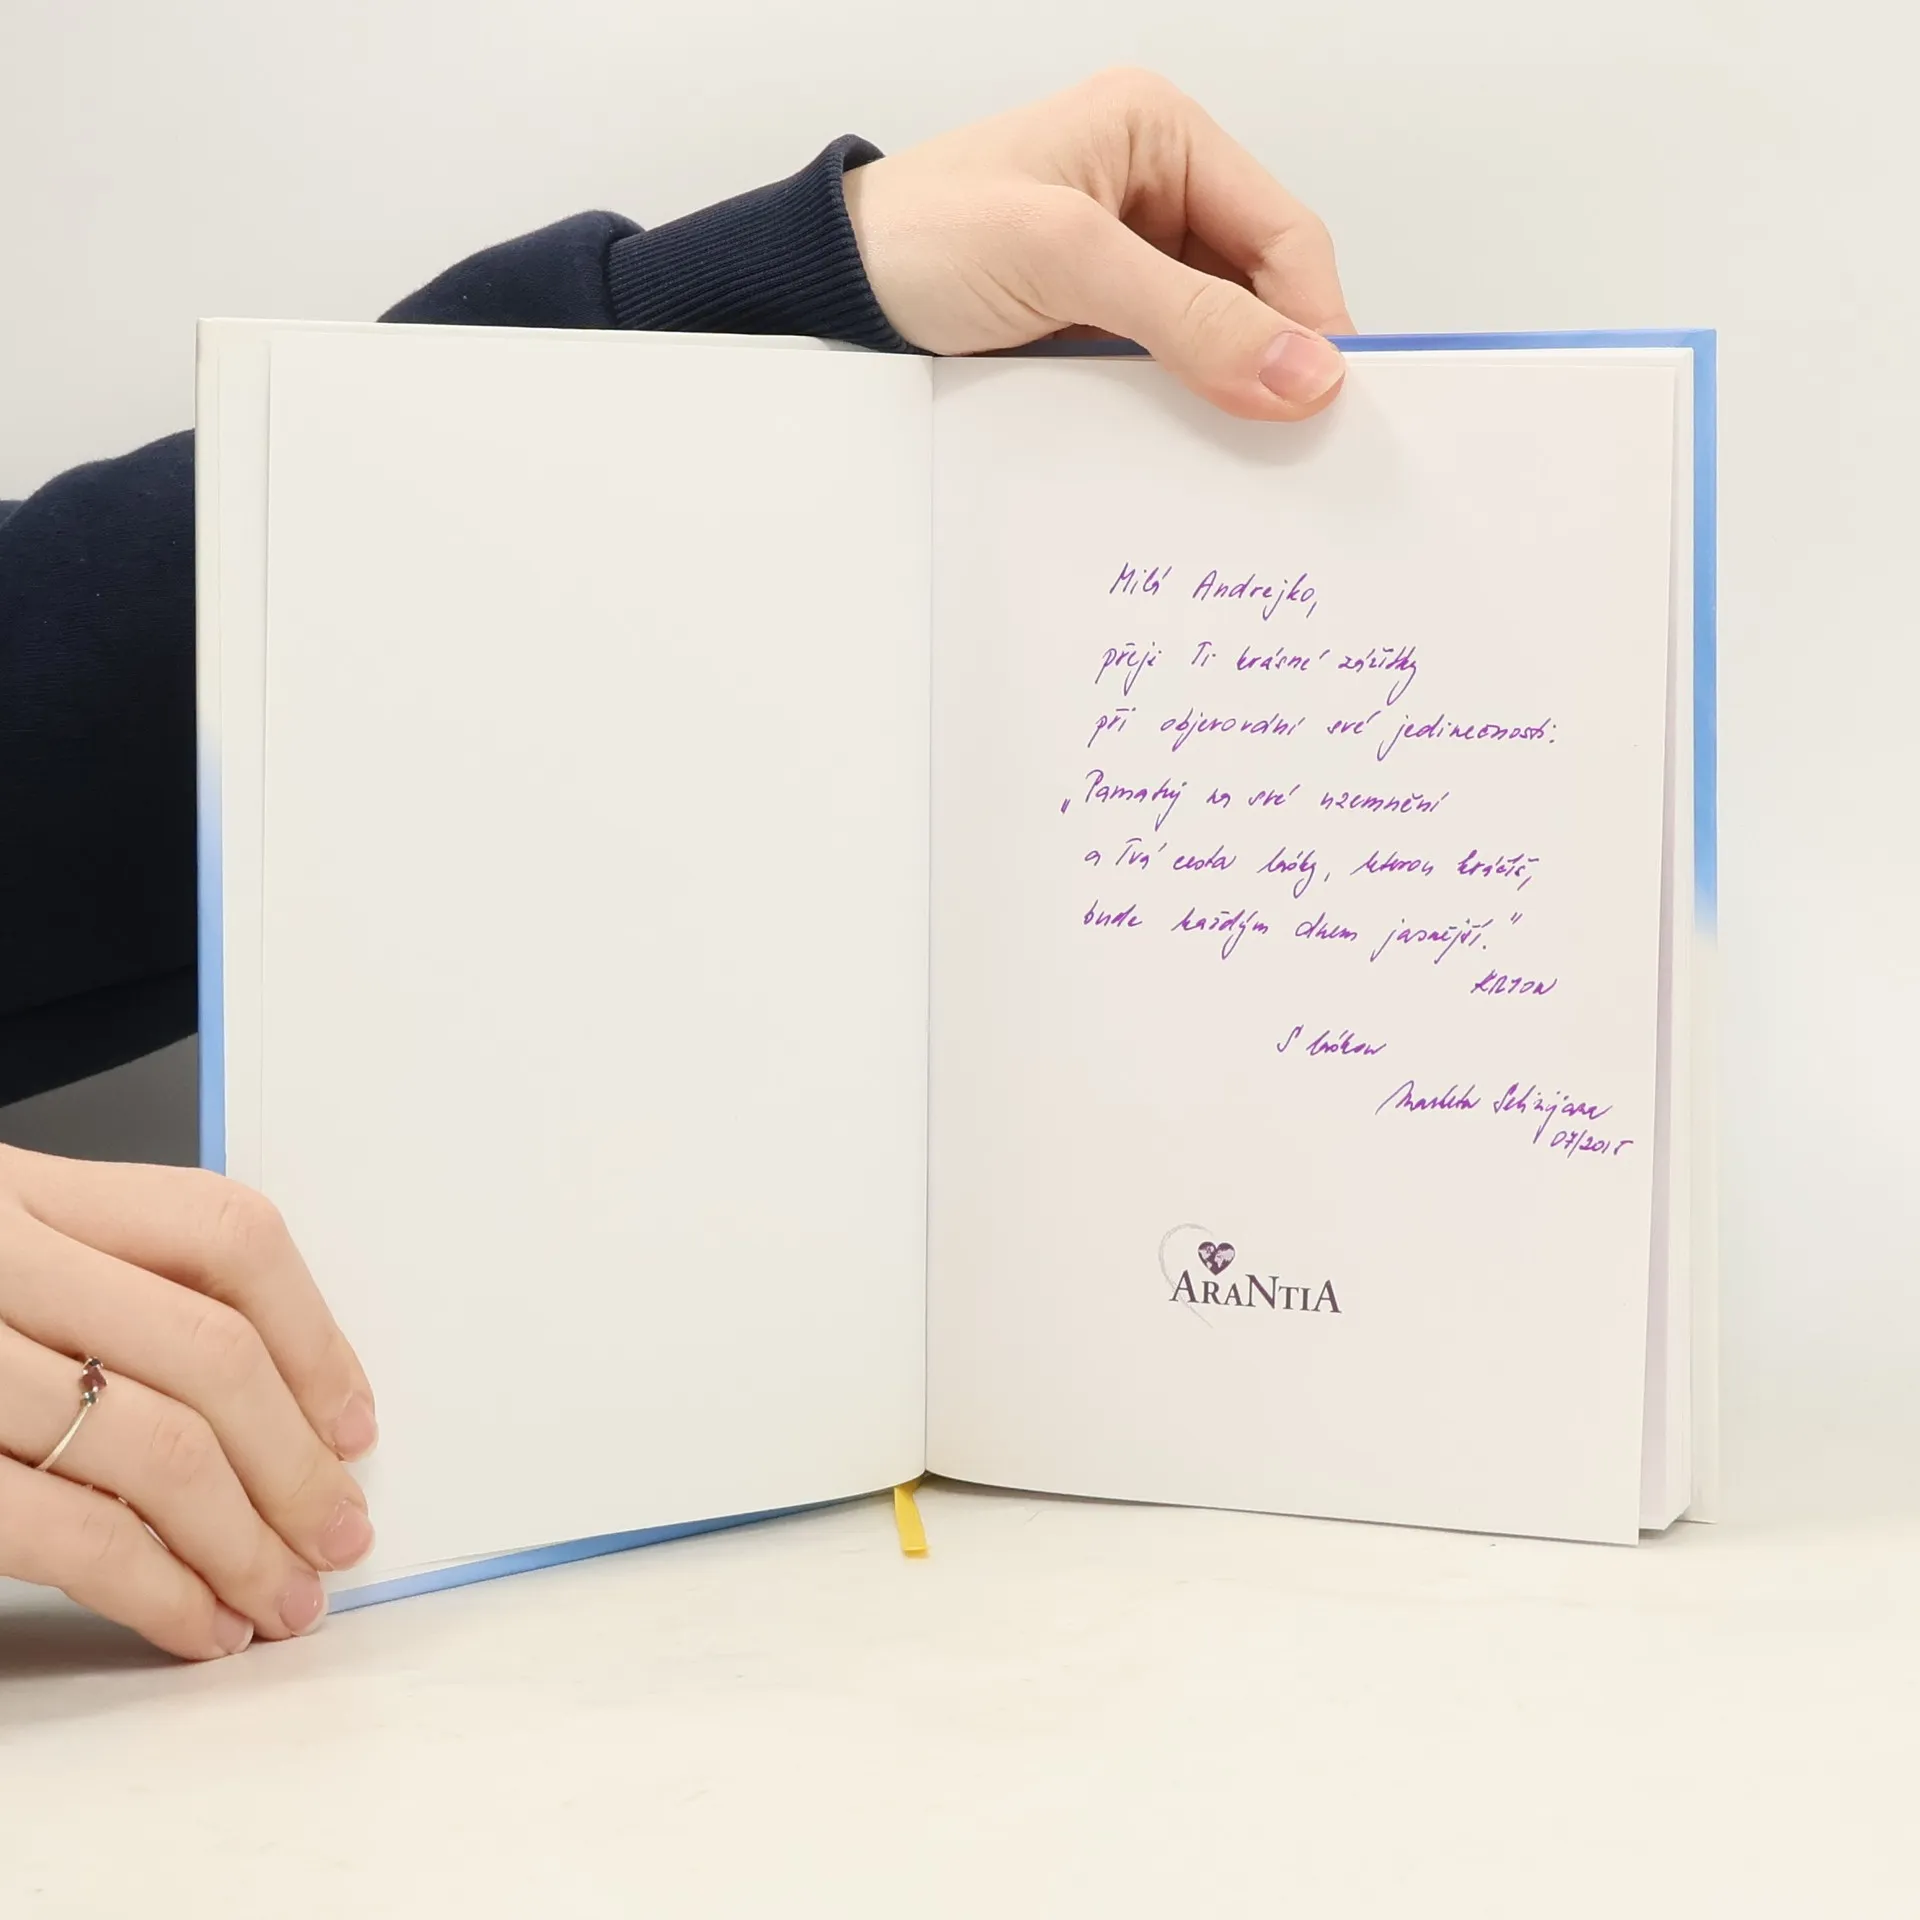 Milá Andrejko,
přeji Ti krásné zážitky
při objevování své jedinečnosti.
„Pamatuj na své uzemnění
a Tvá cesta lásky, kterou kráčíš,
bude každým dnem jasnější.“
KRYON
S láskou
Markéta
07/2015
ARANTIA